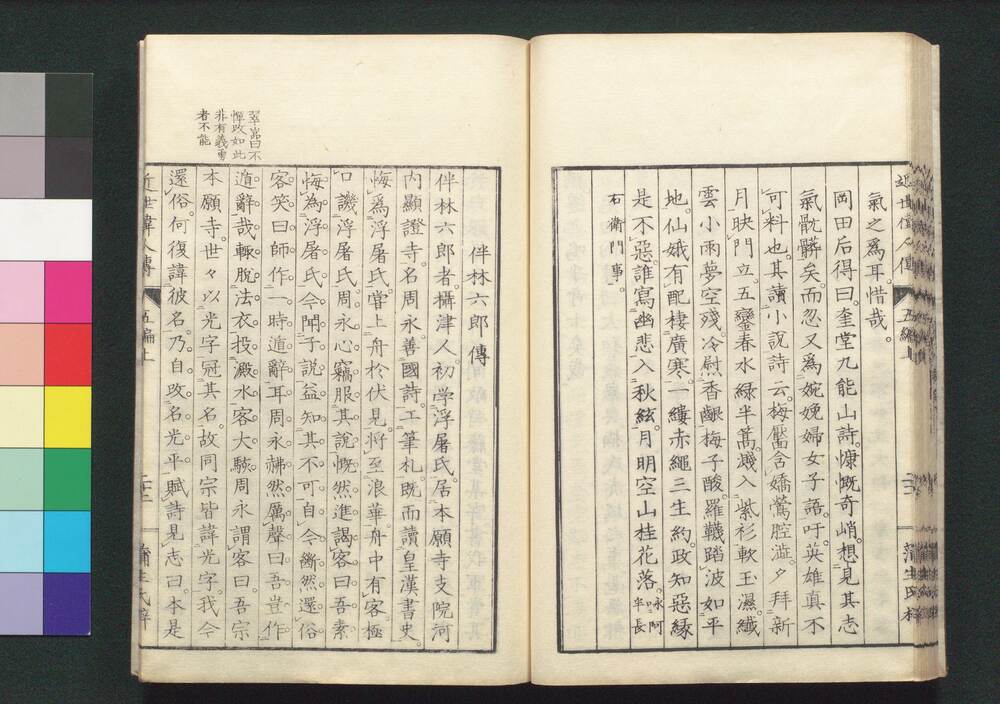 氣之爲耳。惜哉。
岡田后得曰。奎堂九能山詩。慷慨奇峭。想見其志
氣骯髒矣。而忍又爲婉娩婦女子語。吁。英雄真不
可料也。其讀小說詩云。梅靨含嬌鶯腔澁。夕拜新
月映門立。五鑾春水綠半蒿。濺入紫衫軟玉濕。纎
雲小雨夢空殘。冷慰香齦梅子酸。羅韈踏波如平
地。仙娥有配棲廣寒。一縷赤繩三生約。政知惡緣
是不惡。誰寫幽悲入秋絃。月明空山桂花落。
右衛門事。
伴林六郎傳
伴林六郎者。攝津人。初学浮屠氏。居本願寺支院河
內顯證寺。名周永。善國詩。工筆札。既而讀皇漢書史。
悔爲浮屠氏。嘗上舟於伏見。將至浪華。舟中有客極
口譏浮屠氏。周永心竊服其說。慨然進謁客曰。吾素
悔爲浮屠氏。今聞子說。益知其不可。自今斷然還俗。
客笑曰。師作一時遁辭耳。周永艴然厲聲曰。吾豈作
遁辭哉。輙脫法衣。投澱水。客大駭。周永謂客曰。吾宗
本願寺。世々以光字冠其名。故同宗皆諱光字。我今
還俗。何復諱彼名。乃自改名光平。賦詩見志曰。本是
近世偉人傳
五編上
蒲生氏梓
翠嵒曰不
憚改如此
非有義勇
者不能